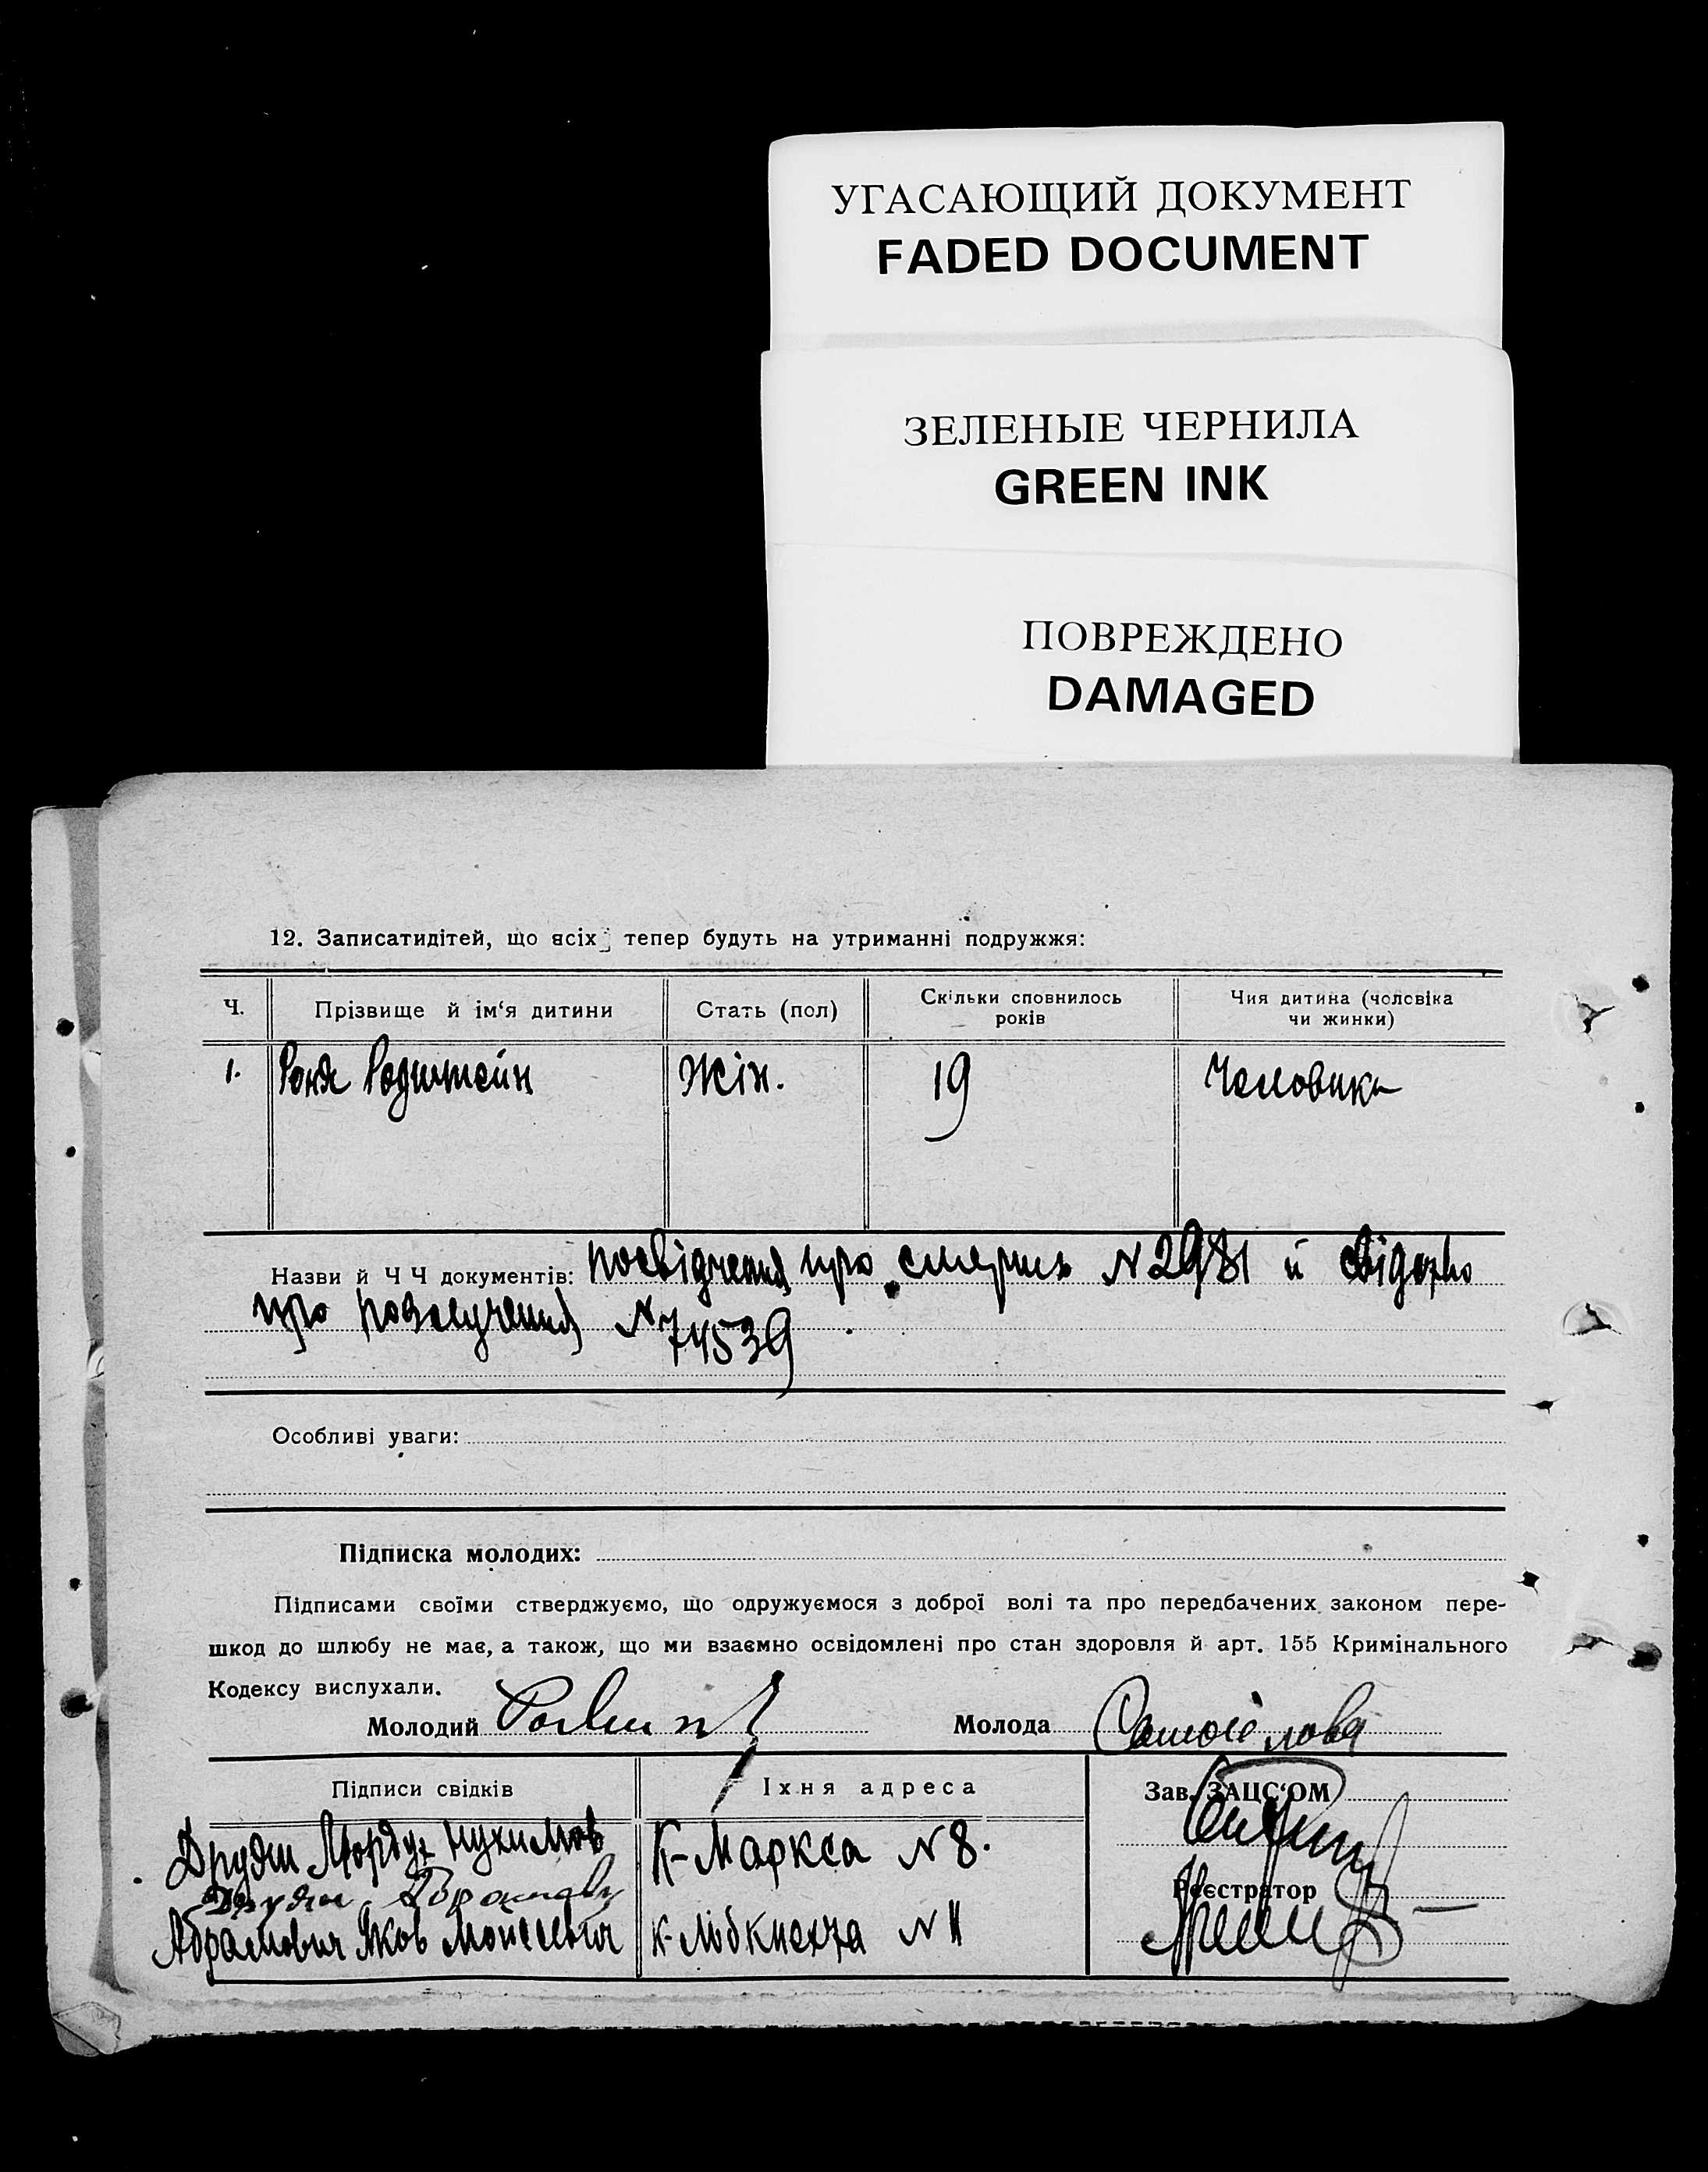 УГАСАЮЩИЙ ДОКУМЕНТ
FADED DOCUMENT
ЗЕЛЕНЫЕ ЧЕРНИЛА
GREEN INK
ПОВРЕЖДЕНО
DAMAGED
12. Записатидітей, що всіх тепер будуть на утриманні подружжя:
Ч. Прізвище й ім‘я дитини Стать (пол) Скільки сповнилось років Чия дитина (чоловіка чи жинки)
1. Жін. 19 Чоловика
Назви й Ч Ч документів: посвідчення про смерть N 2981 й
про N 74539
Особливі уваги:
Підписка молодих:
Підписами своїми стверджуємо, що одружуємося з доброї волі та про передбачених законом пере-
шкод до шлюбу не має, а також, що ми взаємно освідомлені про стан здоровля й арт. 155 Кримінального
Кодексу вислухали.
Молодий Молода
Підписи свідків Їхня адреса Зав. ЗАЦС‘ОМ
К-Маркса N 8.
Реєстратор
Абрамович Яков Мойсеевич К-Лібкнехта N 11